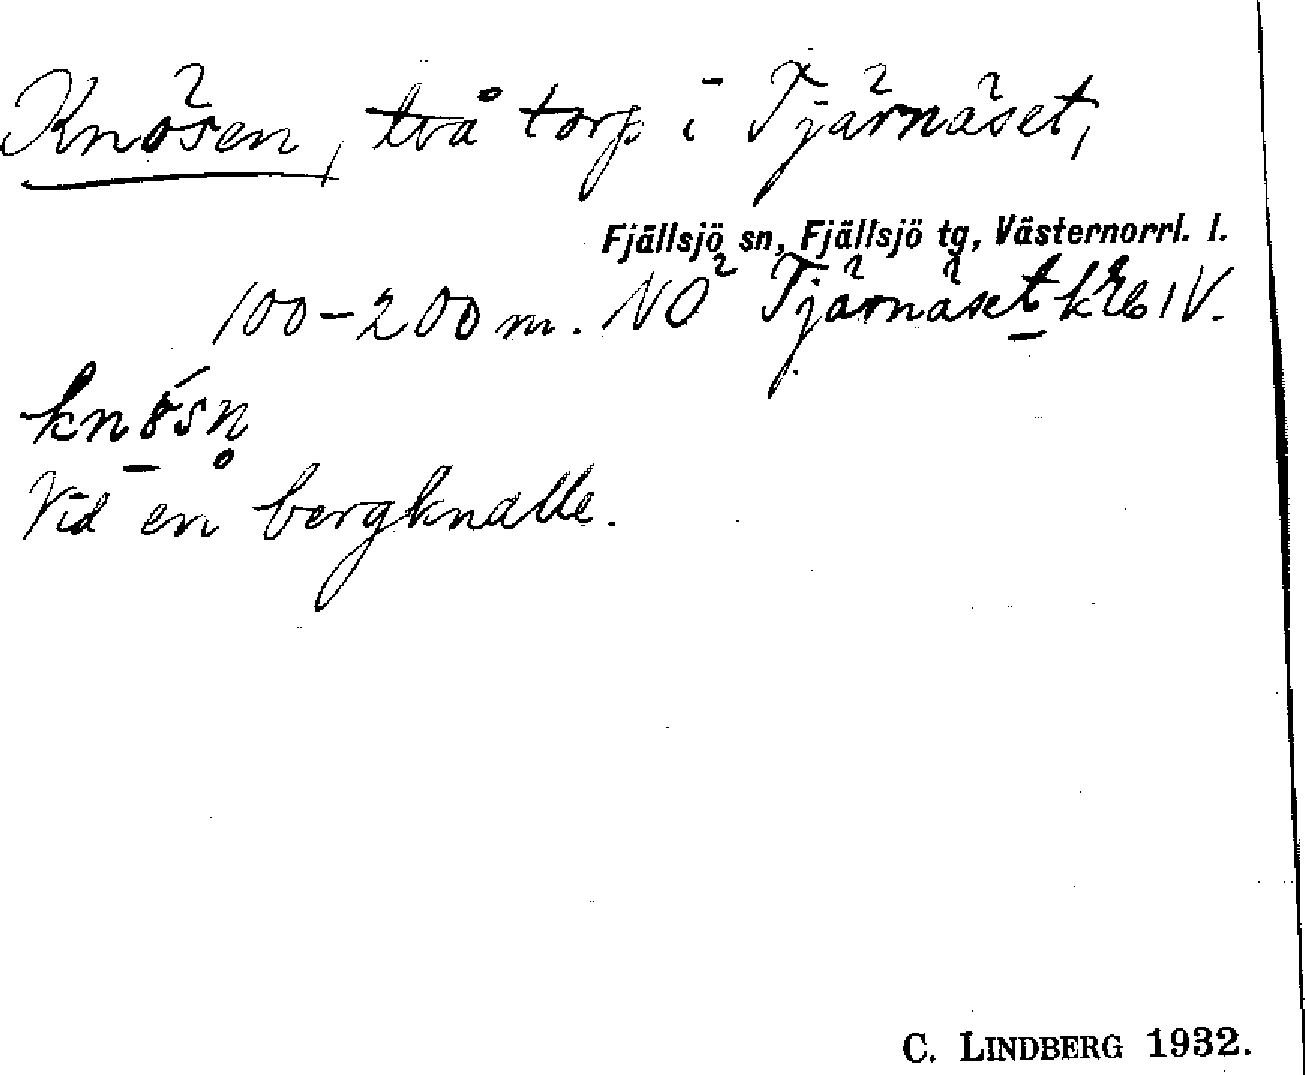 Knösen, två torp i Tjärnäset,
Fjällsjö sn, Fjällsjö tg, Västernorrl. l.
100-200 m. NÖ Tjärnäset
knösn̥
Vid en bergknalle.
C. LINDBERG 1932.